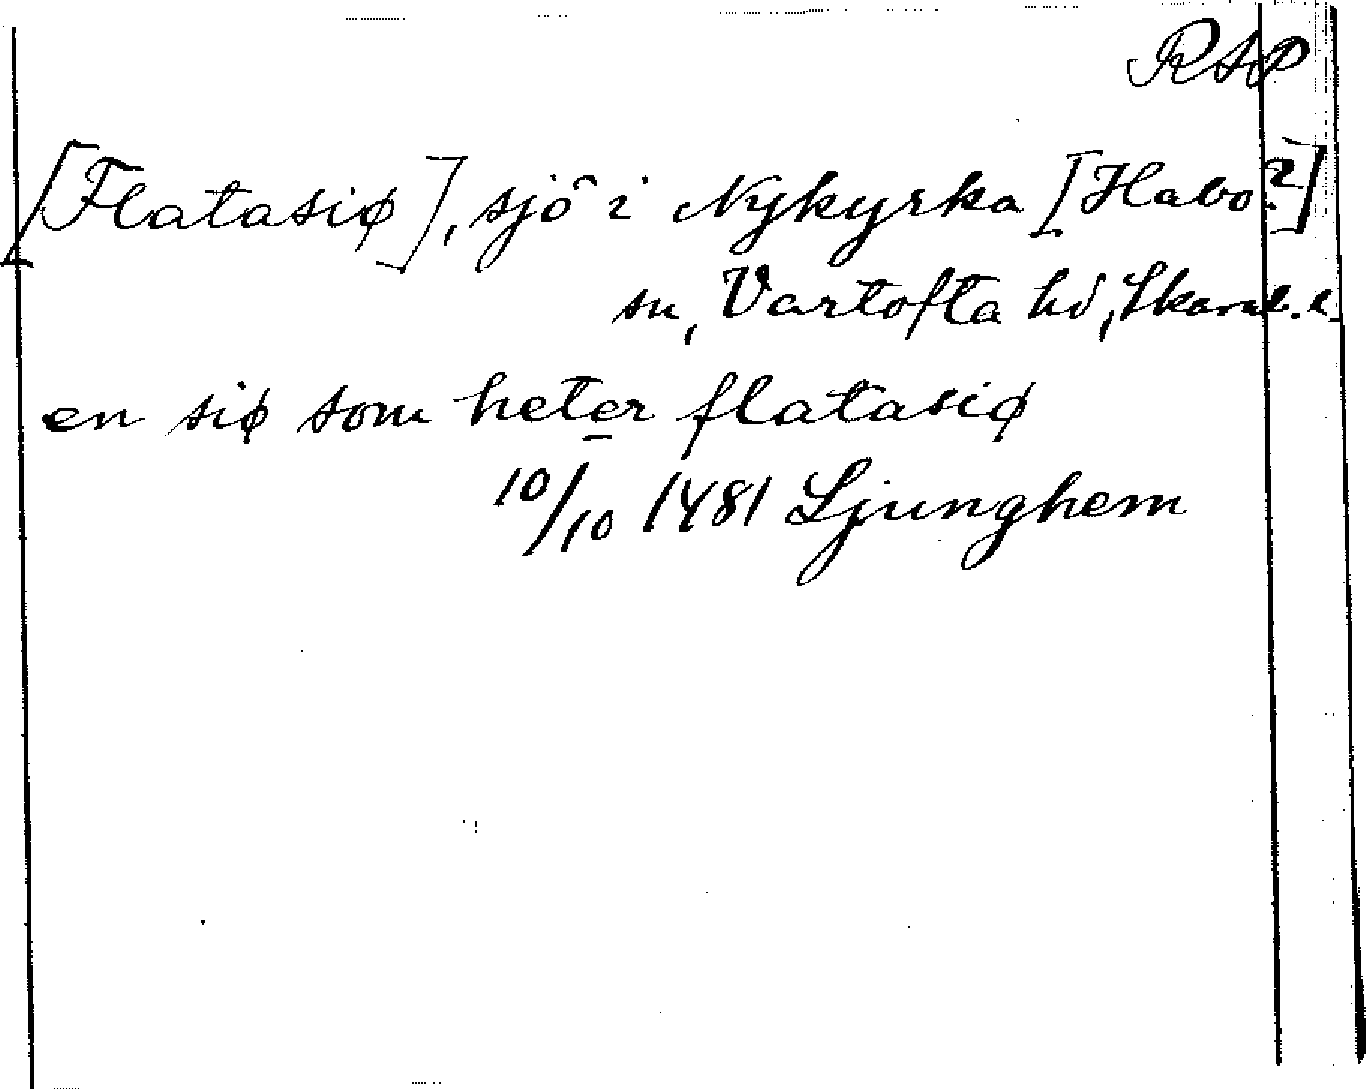 RAP
[Flatasiø], sjö i Nykyrka [Habo?]
sn, Vartofta hd, Skarab. l.
en siø som heter flatasiø
10/10 1481 Ljunghem